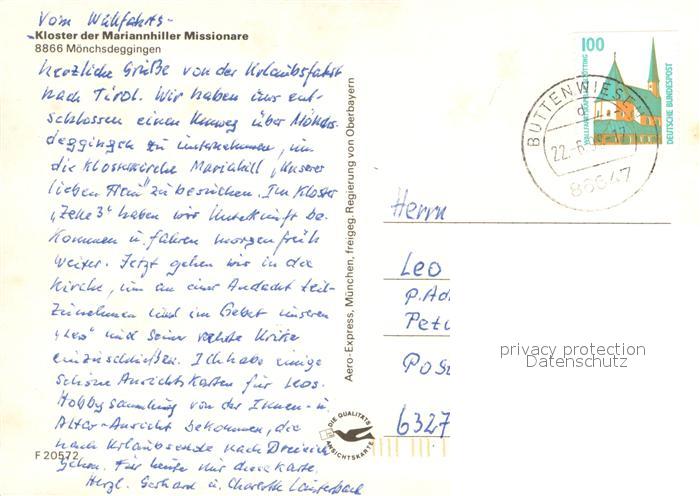 Vom Wallfahrts-
Kloster der Mariannhiller Missionare
8866 Mönchsdeggingen
herzliche Grüße von der Urlaubsfahrt
nach Tirol. Wir haben uns ent-
schlossen einen Umweg über Mönchs-
deggingen zu unternehmen, um
die Klosterkirche Mariahill „Unserer
lieben Frau" zu besuchen. Im Kloster
„Zelle 3" haben wir Unterkunft be-
kommen u. fahren morgen früh
weiter. Jetzt gehen wir in die
Kirche, um an einer Andacht teil-
zunehmen und im Gebet unseren
„Leo" und seine
einzuschließen. Ich habe einige
schöne Ansichtskarten für Leos
Hobbysammlung von der Innen- u.
Altar-Ansicht bekommen, die
nach Urlaubsende nach Dreieich
gehen. Für heute nur diese Karte.
Herzl. Gerhard u. Charlotte Lauterbach
F 20572
Aero-Express, München, freigeg. Regierung von Oberbayern
DIE QUALITÄTS
ANSICHTSKARTE
100
WALLFAHRTSKAPELLE ALTÖTTING
DEUTSCHE BUNDESPOST
BUTTENWIESEN
d
22.-6.
86647
Herrn
Leo
P.Ad
Pete
Pos
6327
privacy protection
Datenschutz